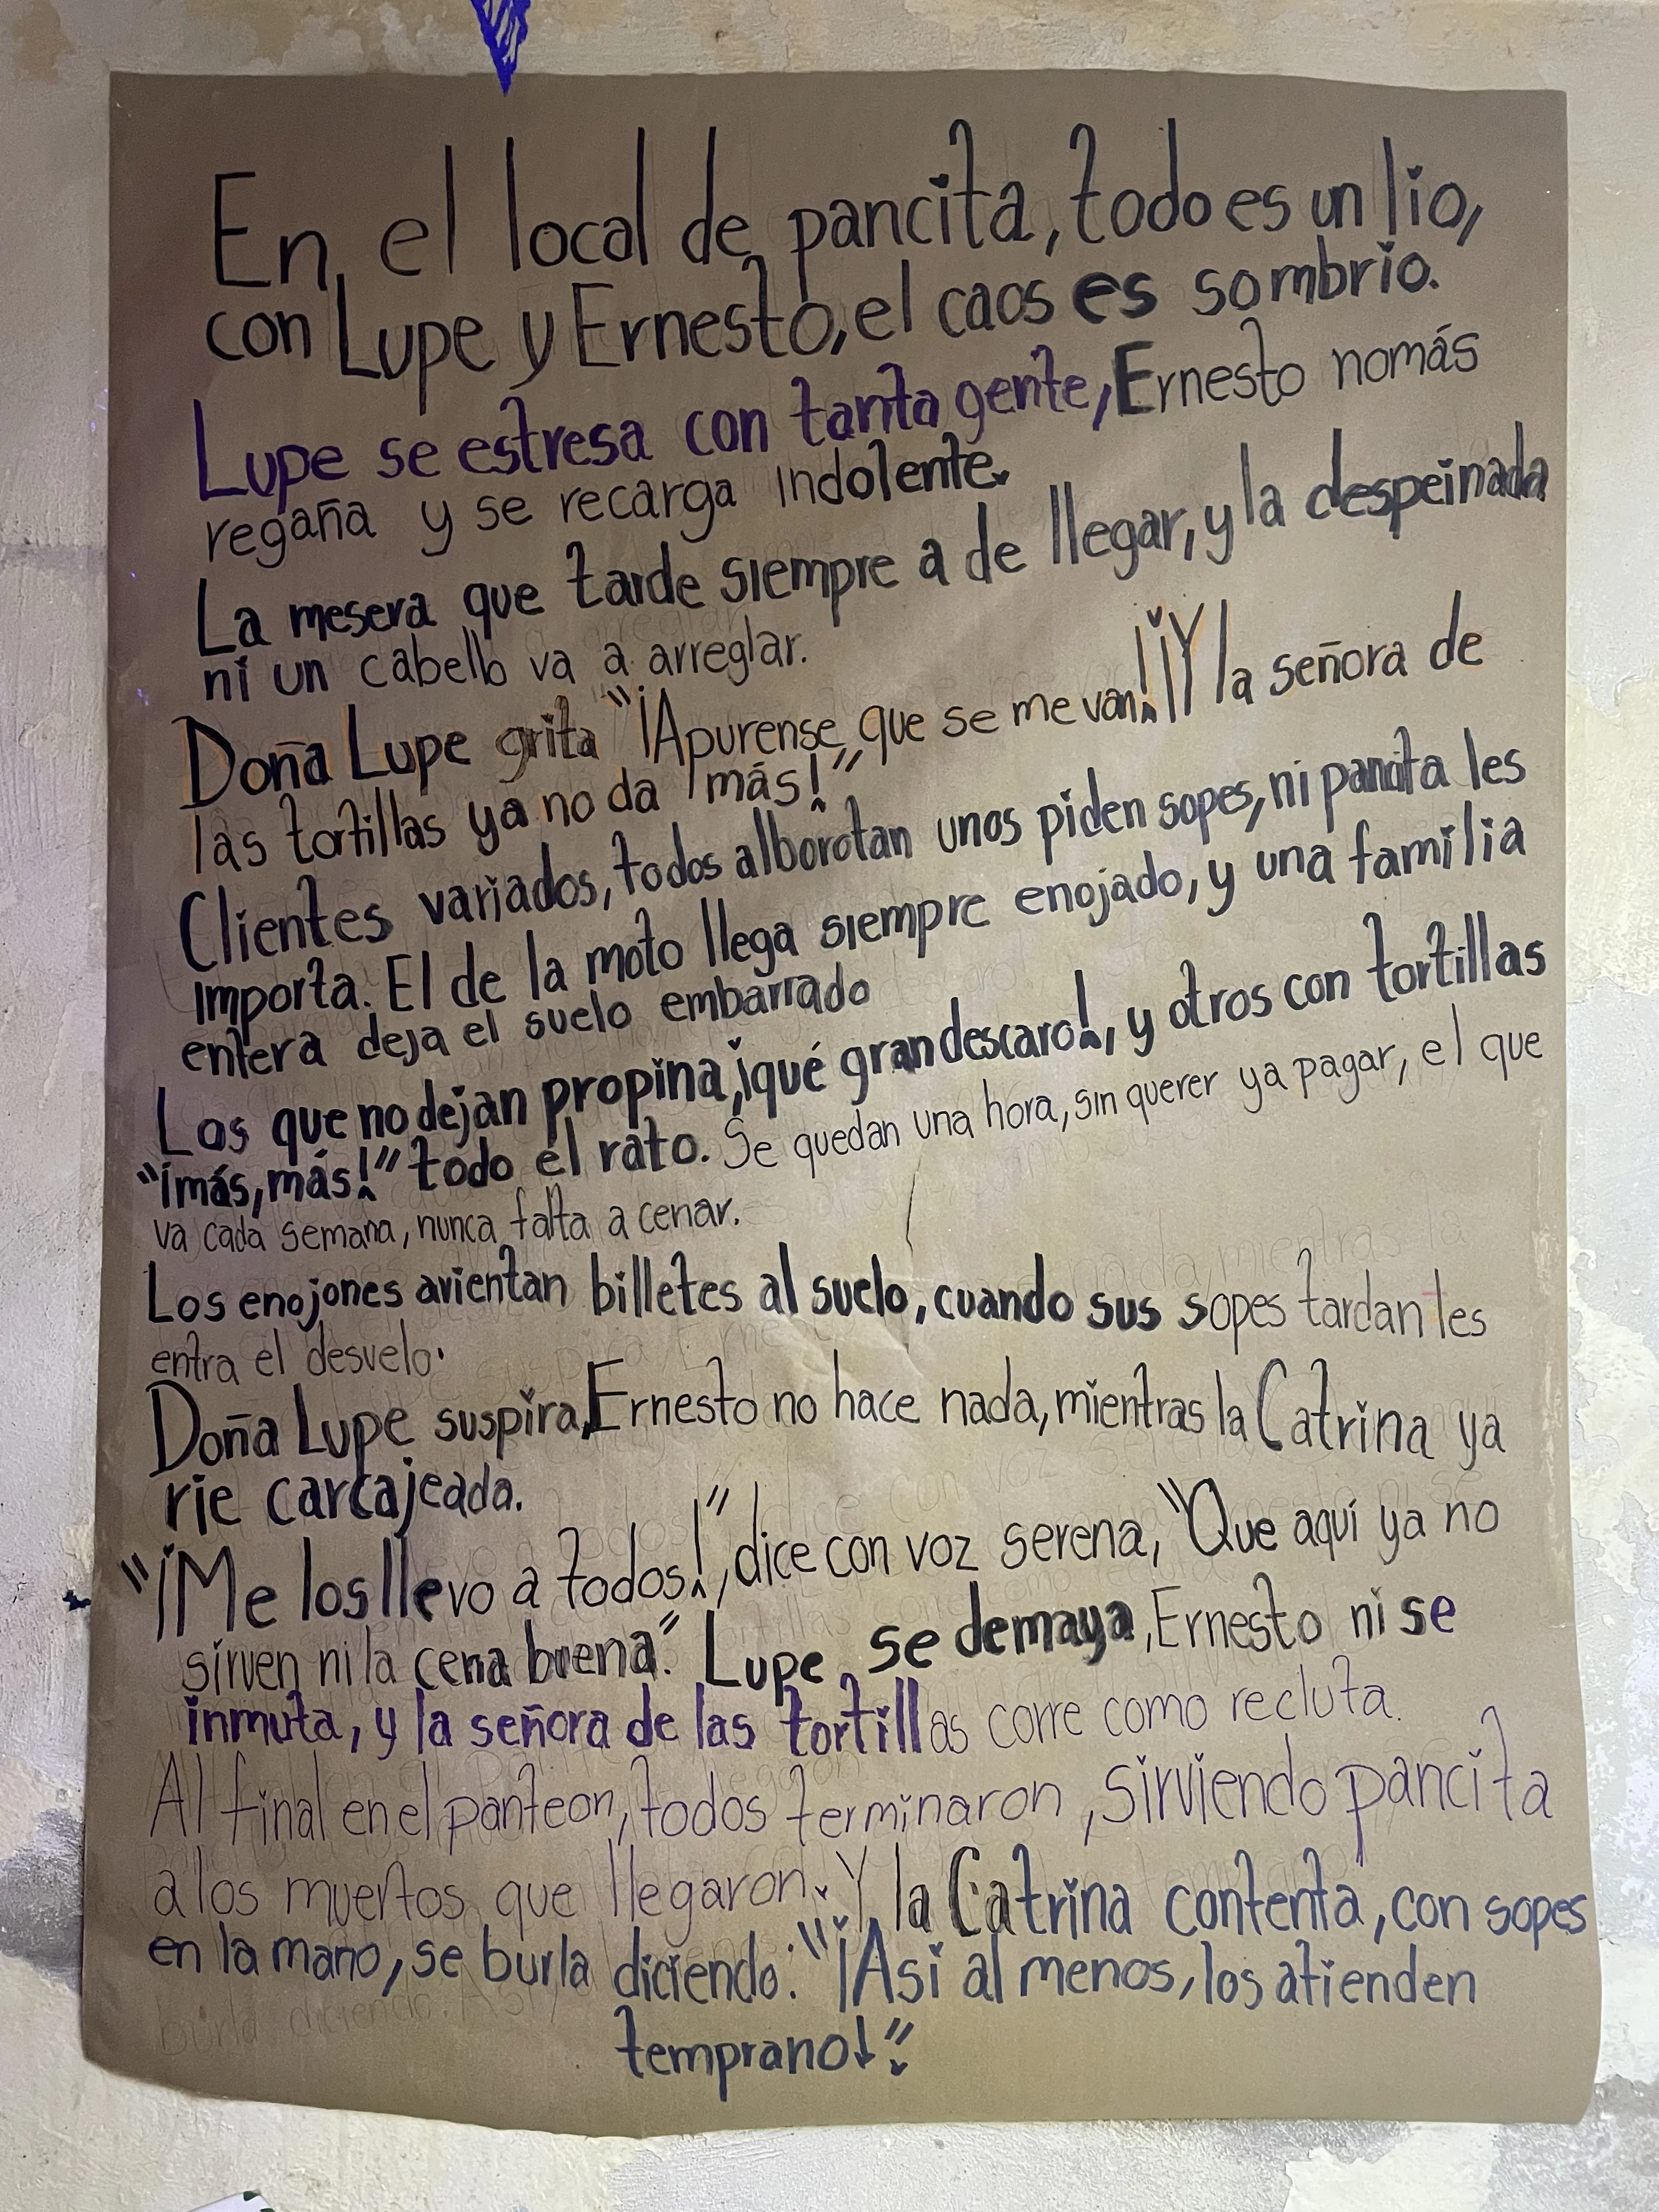 En el local de pancita, todo es un lio,
con Lupe y Ernesto, el caos es sombrio.
Lupe se estresa con tanta gente, Ernesto nomás
regaña y se recarga indolente.
La mesera que tarde siempre a de llegar, y la despeinada
ni un cabello va a arreglar.
Doña Lupe grita "¡Apurense, que se me van! ¡Y la señora de
las tortillas ya no da más!"
Clientes variados, todos alborotan unos piden sopes, ni pancita les
importa. El de la moto llega siempre enojado, y una familia
entera deja el suelo embarrado
Los que no dejan propina, ¡qué gran descaro!, y otros con tortillas
"¡más, más!" todo el rato. Se quedan una hora, sin querer ya pagar, el que
va cada semana, nunca falta a cenar.
Los enojones avientan billetes al suelo, cuando sus sopes tardan les
entra el desvelo.
Doña Lupe suspira, Ernesto no hace nada, mientras la Catrina ya
rie carcajeada.
"¡Me los llevo a todos!", dice con voz serena, "Que aquí ya no
sirven ni la cena buena." Lupe se demaya, Ernesto ni se
inmuta, y la señora de las tortillas corre como recluta.
Al final en el panteon, todos terminaron, sirviendo pancita
a los muertos que llegaron. Y la Catrina contenta, con sopes
en la mano, se burla diciendo: "¡Asi al menos, los atienden
temprano!"